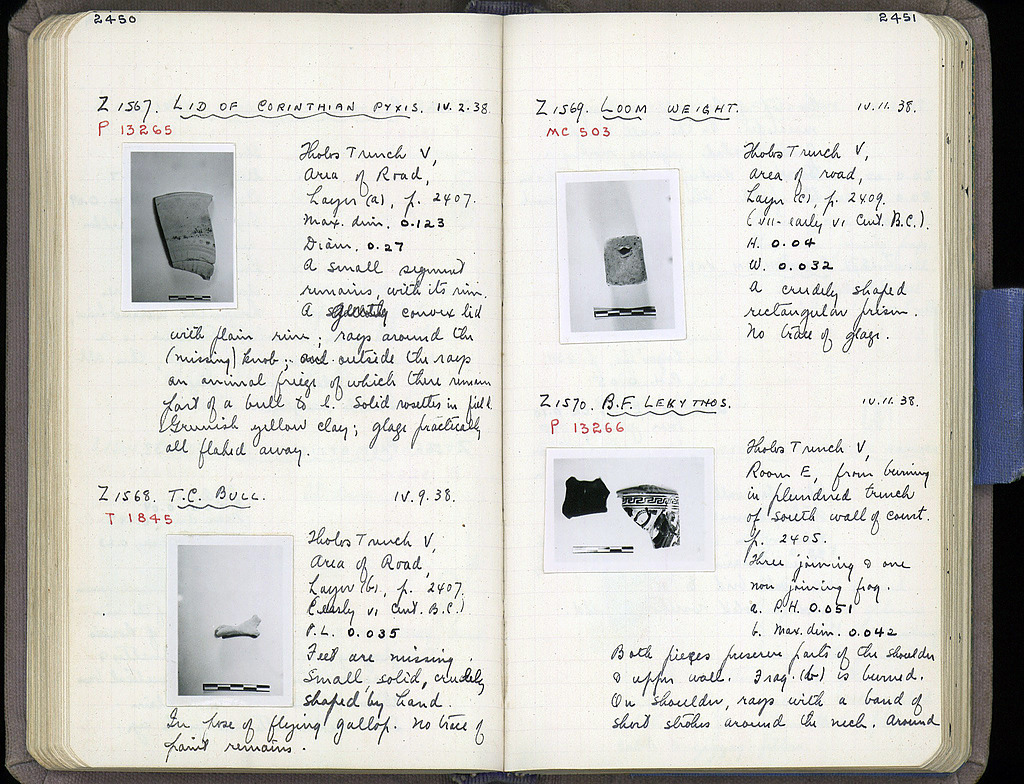 2450
Z 1567. LID OF CORINTHIAN PYXIS. IV. 2. 38.
P 13265
Tholos Trench V,
Area of Road,
Layer (a), p. 2407.
Max. dim. 0.123
Diam. 0.27
A small segment
remains, with its rim.
A convex lid
with plain rim; rays around the
(missing) knob; outside the rays
an animal frieze of which there remain
part of a bull to l. Solid rosettes in field.
Greenish yellow clay; glaze practically
all flaked away.
Z 1568. T.C. BULL. IV. 9. 38.
T 1845
Tholos Trench V,
Area of Road,
Layer (b), p. 2407
(early VI Cent. B.C.)
P.L. 0.035
Feet are missing.
Small solid, crudely
shaped by hand.
In pose of flying gallop. No trace of
paint remains.
2451
Z 1569. LOOM WEIGHT. IV. 11. 38.
MC 503
Tholos Trench V,
Area of road,
Layer (c), p. 2409.
(VII - early VI Cent. B.C.).
H. 0.04
W. 0.032
A crudely shaped
rectangular prism.
No trace of glaze.
Z 1570. B.F. LEKYTHOS. IV. 11. 38.
P 13266
Tholos Trench V,
Room E, from burning
in plundered trench
of South wall of court.
p. 2405.
Three joining & one
non joining frag.
a. P.H. 0.051
b. Max. dim. 0.042
Both pieces preserve parts of the shoulder
& upper wall. Frag. (b) is burned.
On shoulder, rays with a band of
short strokes around the neck. Around